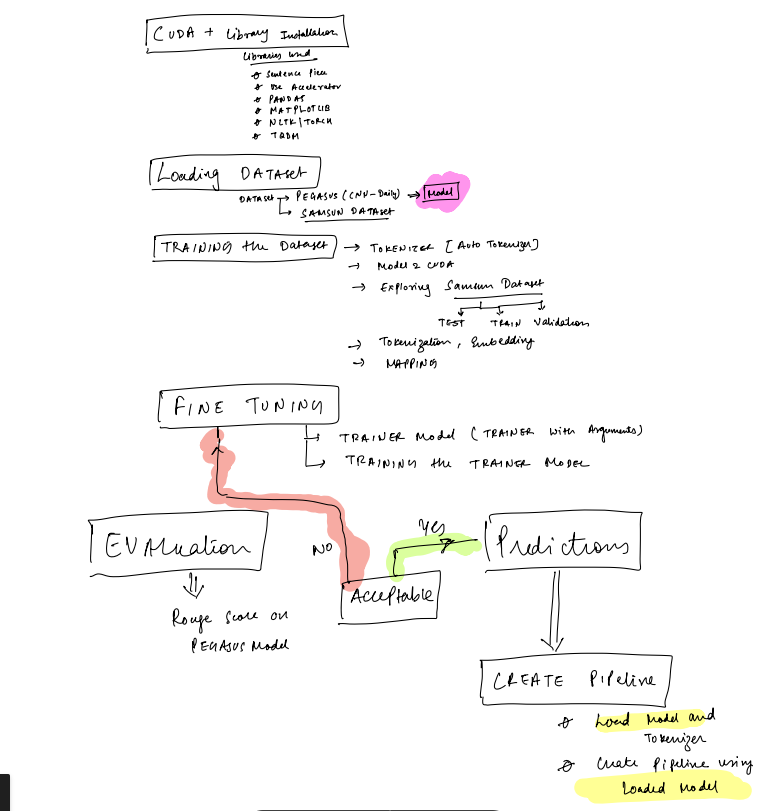 CUDA + Library Installation
Libraries used
Sentence Piece
Use Accelerator
PANDAS
MATPLOTLIB
NLTK/TORCH
TQDM
Loading DATASET
DATASET → PEGASUS (CNN-Daily) → Model
SAMSUN DATASET
TRAINING the Dataset → TOKENIZER [Auto Tokenizer]
→ Model 2 CUDA
→ Exploring Samsum Dataset
TEST TRAIN Validation
→ Tokenization, Embedding
→ MAPPING
FINE TUNING
→ TRAINER Model (TRAINER with Arguments)
→ TRAINING the TRAINER MODEL
Yes
EVAluation
Predictions
NO
Acceptable
Rouge Score on
PEGASUS Model
CREATE Pipeline
Load Model and
Tokenizer
Create Pipeline using
Loaded Model